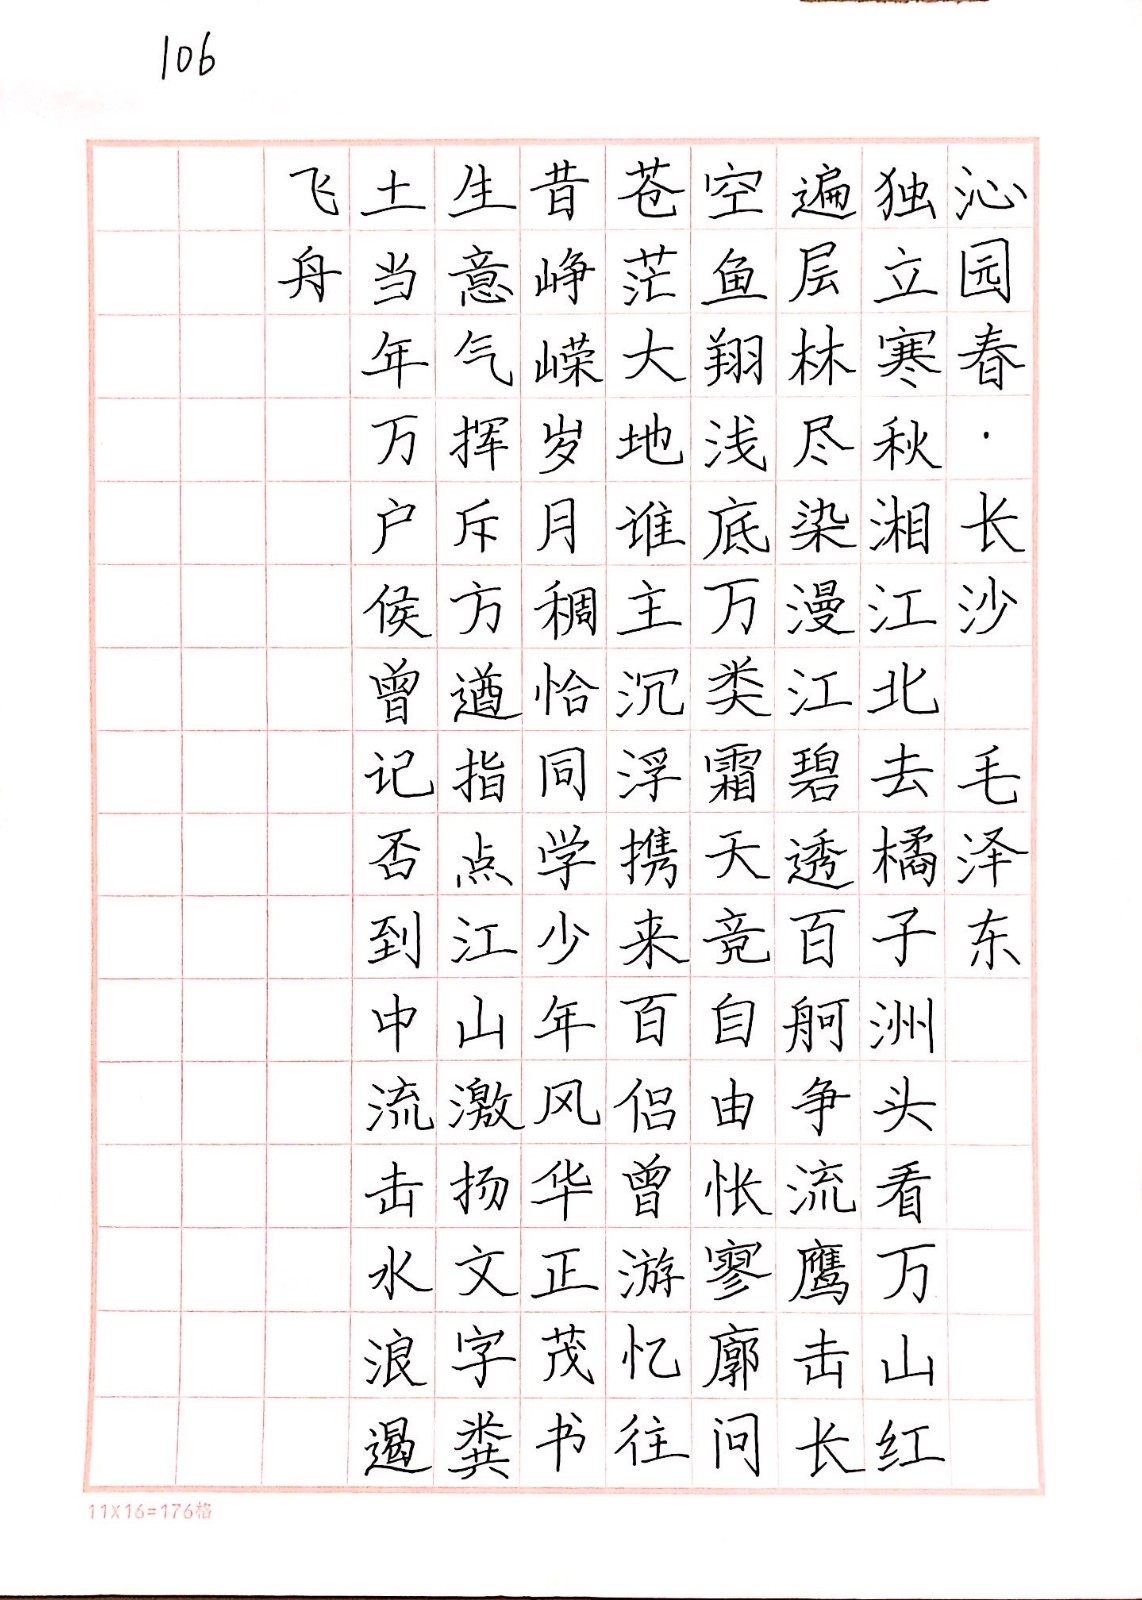 106
沁园春·长沙 毛泽东
独立寒秋湘江北去橘子洲头看万山红
遍层林尽染漫江碧透百舸争流鹰击长
空鱼翔浅底万类霜天竞自由怅寥廓问
苍茫大地谁主沉浮携来百侣曾游忆往
昔峥嵘岁月稠恰同学少年风华正茂书
生意气挥斥方遒指点江山激扬文字粪
土当年万户侯曾记否到中流击水浪遏
飞舟
11X16=176格